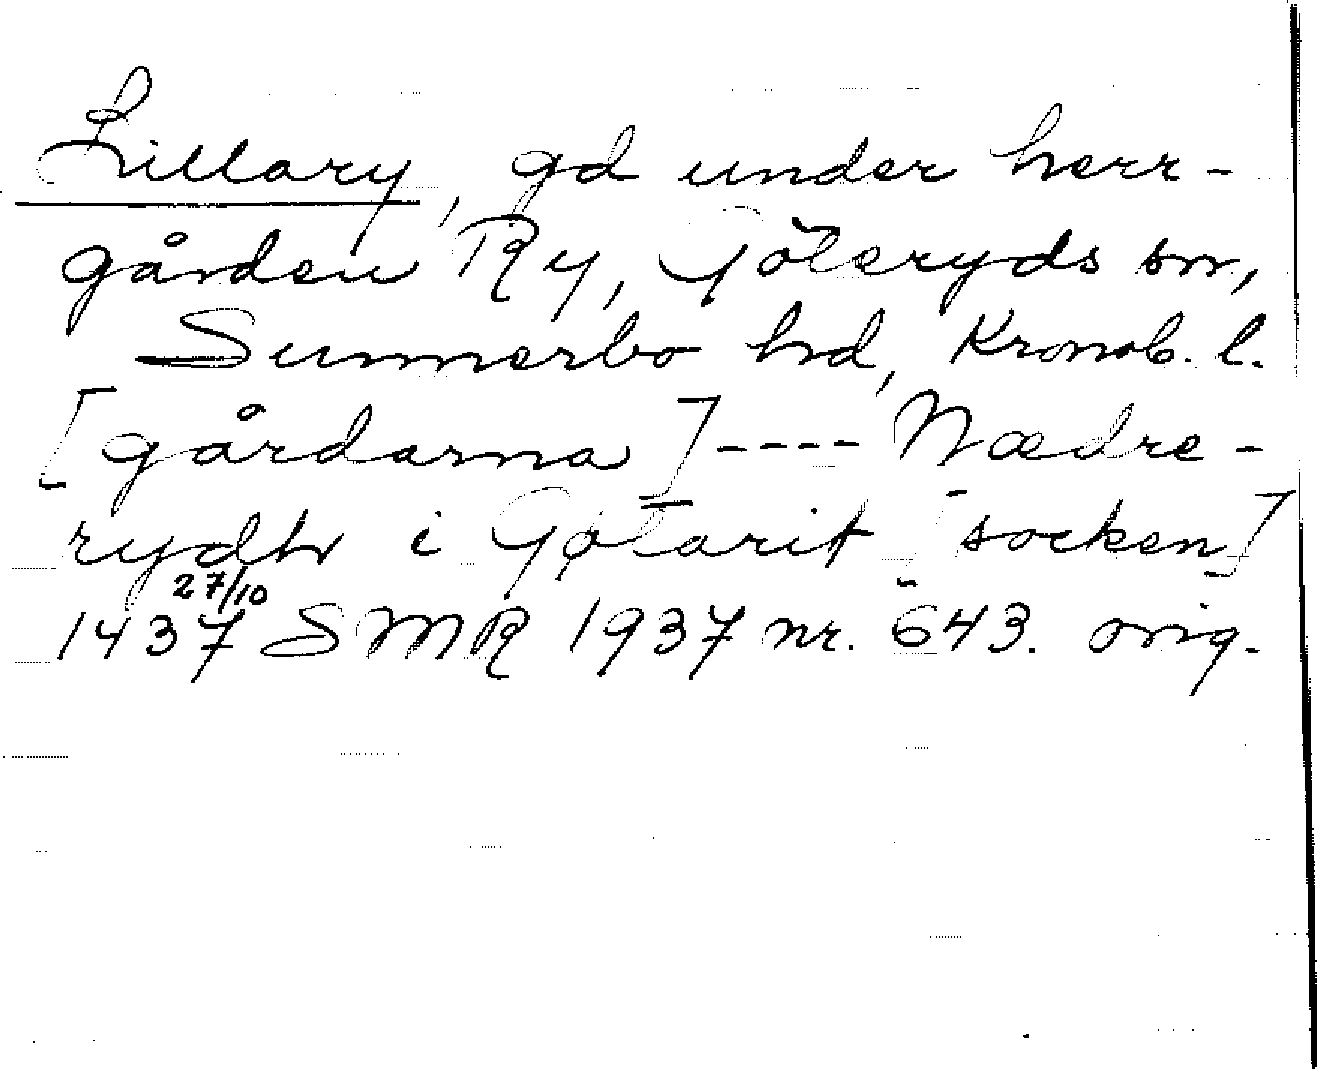 Lillary, gd under herr-
gården Ry, Göteryds sn,
Sunnerbo hd, Kronob. l.
[gårdarna] ---- Nædre-
rydh i Gøtarit [socken]
1437 27/10 SMR 1937 nr. 643. orig.